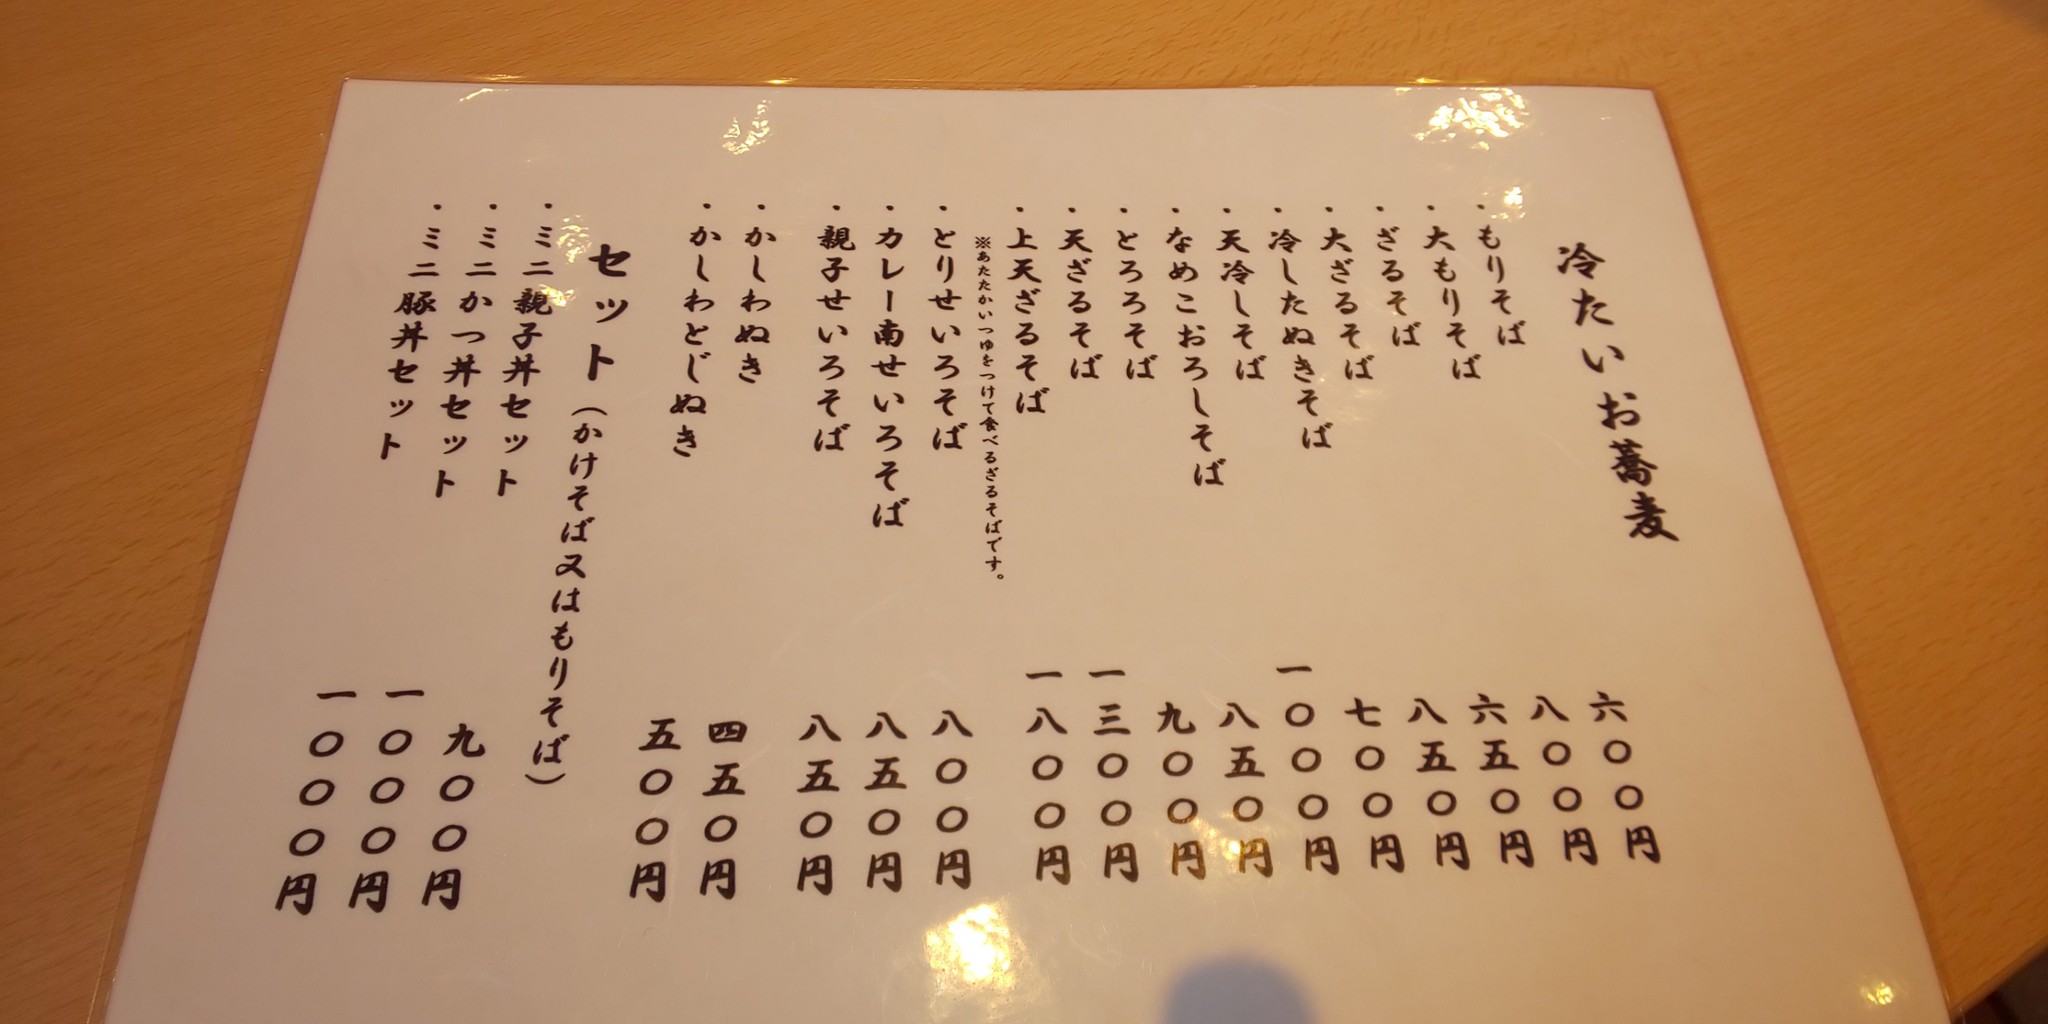 冷たいお蕎麦
・もりそば 六〇〇円
・大もりそば 八〇〇円
・ざるそば 六五〇円
・大ざるそば 八五〇円
・冷したぬきそば 七〇〇円
・天冷しそば 一〇〇〇円
・なめこおろしそば 八五〇円
・とろろそば 九〇〇円
・天ざるそば 一三〇〇円
・上天ざるそば 一八〇〇円
※あたたかいつゆをつけて食べるざるそばです。
・とりせいろそば 八〇〇円
・カレー南せいろそば 八五〇円
・親子せいろそば 八五〇円
・かしわぬき 四五〇円
・かしわとじぬき 五〇〇円
セット（かけそば又はもりそば）
・ミニ親子丼セット 九〇〇円
・ミニかつ丼セット 一〇〇〇円
・ミニ豚丼セット 一〇〇〇円